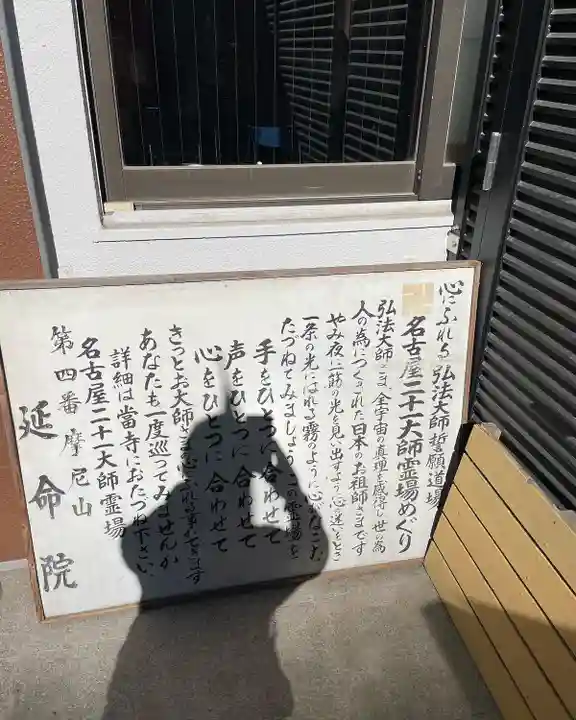 心にふれる 弘法大師 誓願道場
名古屋二十一大師霊場めぐり
弘法大師さま、全宇宙の真理を感得し世の為
人の為につくされた日本のお祖師さまです
やみ夜に一筋の光を見い出すよう心迷えるとき
一条の光にはれる霧のように心がなごむ
たづねてみましょう この霊場を
手をひとつに合わせて
声をひとつに合わせて
心をひとつに合わせて
きっとお大師さまの心にふれる事ができます
あなたも一度巡ってみませんか
詳細は當寺におたづね下さい
名古屋二十一大師霊場
第四番 摩尼山
延命院